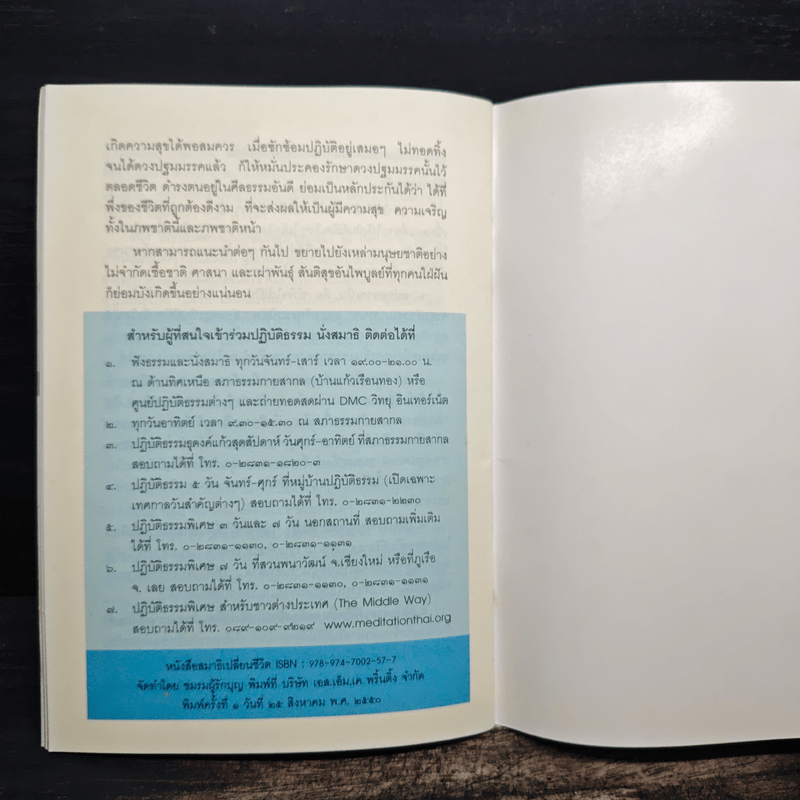 เกิดความสุขได้พอสมควร เมื่อซักซ้อมปฏิบัติอยู่เสมอๆ ไม่ทอดทิ้ง
จนได้ดวงปฐมมรรคแล้ว ก็ให้หมั่นประคองรักษาดวงปฐมมรรคนั้นไว้
ตลอดชีวิต ดำรงตนอยู่ในศีลธรรมอันดี ย่อมเป็นหลักประกันได้ว่า ได้ที่
พึ่งของชีวิตที่ถูกต้องดีงาม ที่จะส่งผลให้เป็นผู้มีความสุข ความเจริญ
ทั้งในภพชาตินี้และภพชาติหน้า
หากสามารถแนะนำต่อๆ กันไป ขยายไปยังเหล่ามนุษยชาติอย่าง
ไม่จำกัดเชื้อชาติ ศาสนา และเผ่าพันธุ์ สันติสุขอันไพบูลย์ที่ทุกคนใฝ่ฝัน
ก็ย่อมบังเกิดขึ้นอย่างแน่นอน
สำหรับผู้ที่สนใจเข้าร่วมปฏิบัติธรรม นั่งสมาธิ ติดต่อได้ที่
๑. ฟังธรรมและนั่งสมาธิ ทุกวันจันทร์-เสาร์ เวลา ๑๙.๐๐-๒๑.๐๐ น.
ณ ด้านทิศเหนือ สภาธรรมกายสากล (บ้านแก้วเรือนทอง) หรือ
ศูนย์ปฏิบัติธรรมต่างๆ และถ่ายทอดสดผ่าน DMC วิทยุ อินเทอร์เน็ต
๒. ทุกวันอาทิตย์ เวลา ๙.๓๐-๑๕.๓๐ ณ สภาธรรมกายสากล
๓. ปฏิบัติธรรมธุดงค์แก้วสุดสัปดาห์ วันศุกร์-อาทิตย์ ที่สภาธรรมกายสากล
สอบถามได้ที่ โทร. ๐-๒๘๓๑-๑๘๒๐-๓
๔. ปฏิบัติธรรม ๕ วัน จันทร์-ศุกร์ ที่หมู่บ้านปฏิบัติธรรม (เปิดเฉพาะ
เทศกาลวันสำคัญต่างๆ) สอบถามได้ที่ โทร. ๐-๒๘๓๑-๒๒๓๐
๕. ปฏิบัติธรรมพิเศษ ๓ วันและ ๗ วัน นอกสถานที่ สอบถามเพิ่มเติม
ได้ที่ โทร. ๐-๒๘๓๑-๑๑๓๐, ๐-๒๘๓๑-๑๑๓๑
๖. ปฏิบัติธรรมพิเศษ ๗ วัน ที่สวนพนาวัฒน์ จ.เชียงใหม่ หรือที่ภูเรือ
จ. เลย สอบถามได้ที่ โทร. ๐-๒๘๓๑-๑๑๓๐, ๐-๒๘๓๑-๑๑๓๑
๗. ปฏิบัติธรรมพิเศษ สำหรับชาวต่างประเทศ (The Middle Way)
สอบถามได้ที่ โทร. ๐๘๙-๑๐๙-๙๒๑๙ www.meditationthai.org
หนังสือสมาธิเปลี่ยนชีวิต ISBN : 978-974-7002-57-7
จัดทำโดย ชมรมผู้รักบุญ พิมพ์ที่ บริษัท เอส.เอ็ม.เค พริ้นติ้ง จำกัด
พิมพ์ครั้งที่ ๑ วันที่ ๒๕ สิงหาคม พ.ศ. ๒๕๕๐